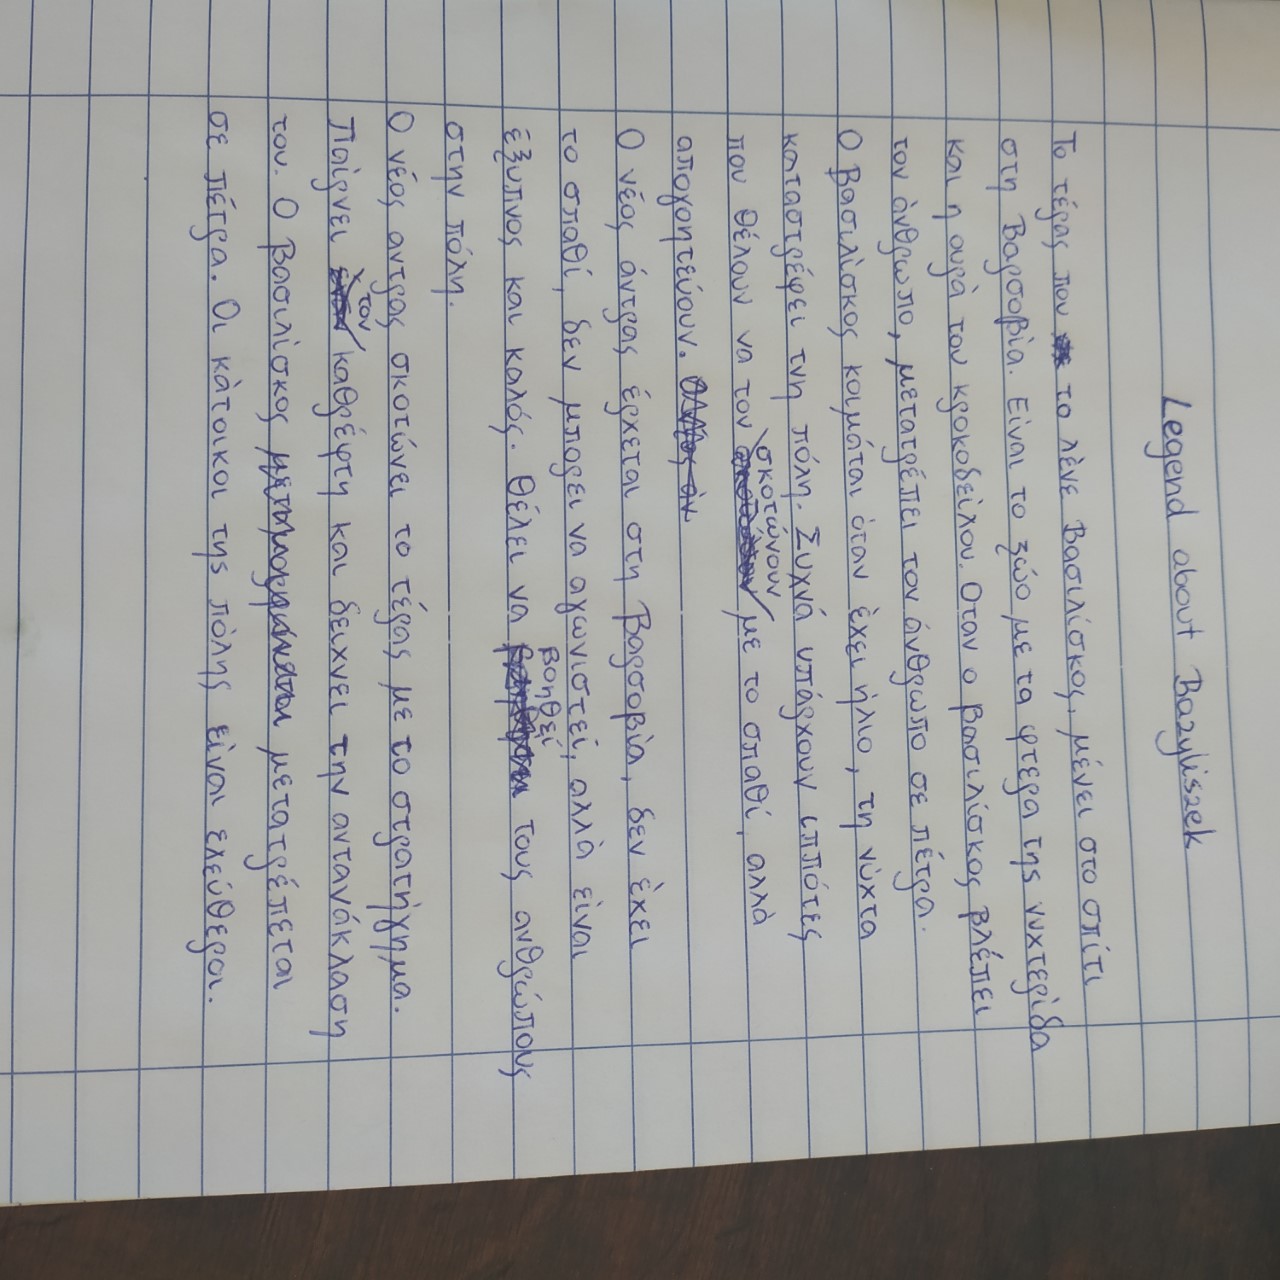 Legend about Bazyliszek
Το τέρας που το λένε Βασιλίσκος, μένει στο σπίτι
στη Βαρσοβία. Είναι το ζώο με τα φτερα της νυχτερίδα
και η ουρά του κροκοδείλου. Οταν ο βασιλίσκος βλέπει
τον άνθρωπο, μετατρέπει τον άνθρωπο σε πέτρα.
Ο βασιλίσκος κοιμάται όταν έχει ήλιο, τη νύχτα
καταστρέφει τνη πόλη. Συχνά υπάρχουν ιππότες
που θέλουν να τον σκοτώνουν με το σπαθί, αλλά
απογοητεύουν.
Ο νέος άντρας έρχεται στη Βαρσοβία, δεν έχει
το σπαθί, δεν μπορει να αγωνιστεί, αλλά είναι
έξυπνος και καλός. Θέλει να βοηθεί τους ανθρώπους
στην πόλη.
Ο νέος αντρας σκοτώνει το τέρας με το στρατήγημα.
Παίρνει τον καθρέφτη και δειχνει την αντανάκλαση
του. Ο βασιλίσκος μετατρέπεται
σε πέτρα. Οι κάτοικοι της πόλης είναι ελεύθεροι.